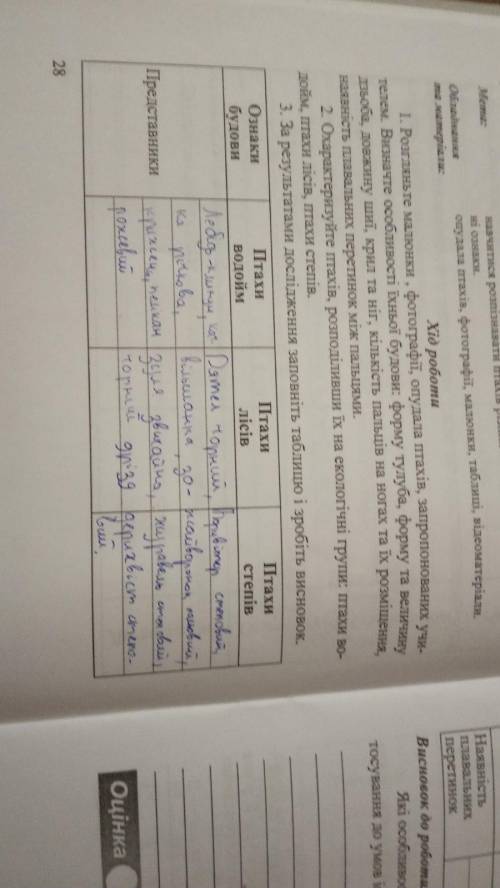 Мета:
навчитися розпізнавати птахів
ні ознаки.
Обладнання
та матеріали:
опудала птахів, фотографії, малюнки, таблиці, відеоматеріали.
Хід роботи
1. Розгляньте малюнки , фотографії, опудала птахів, запропонованих учи-
телем. Визначте особливості їхньої будови: форму тулуба, форму та величину
дзьоба, довжину шиї, крил та ніг, кількість пальців на ногах та їх розміщення,
наявність плавальних перетинок між пальцями.
2. Охарактеризуйте птахів, розподіливши їх на екологічні групи: птахи во-
дойм, птахи лісів, птахи степів.
3. За результатами дослідження заповніть таблицю і зробіть висновок.
Ознаки
будови
Птахи
водойм
Птахи
лісів
Птахи
степів
Представники
Лебідь-шипун, кач-
ка річкова,
крижень, пелікан
рожевий
Дятел чорний,
вільшанка, зо-
зуля звичайна,
чорний дрізд
степовий,
жайворонок
журавель степовий,
деркач степо-
вий.
28
Наявність
плавальних
перетинок
Висновок до роботи
Які особливо
тосування до умов і
Оцінка